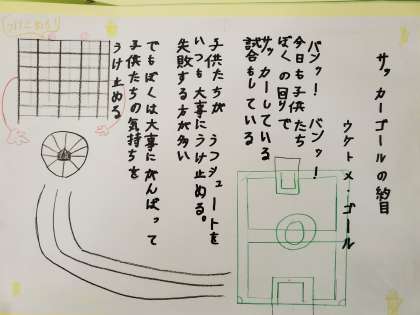 サッカーゴールの約目
ウケトメ・ゴール
バンッ！ バンッ！
今日も子供たち
ぼくの回りで
サッカーしている
試合もしている
子供たちが うつシュートを
いつも大事にうけ止める。
失敗する方が多い
でもぼくは大事にがんばって
子供たちの気持ちを
うけ止める